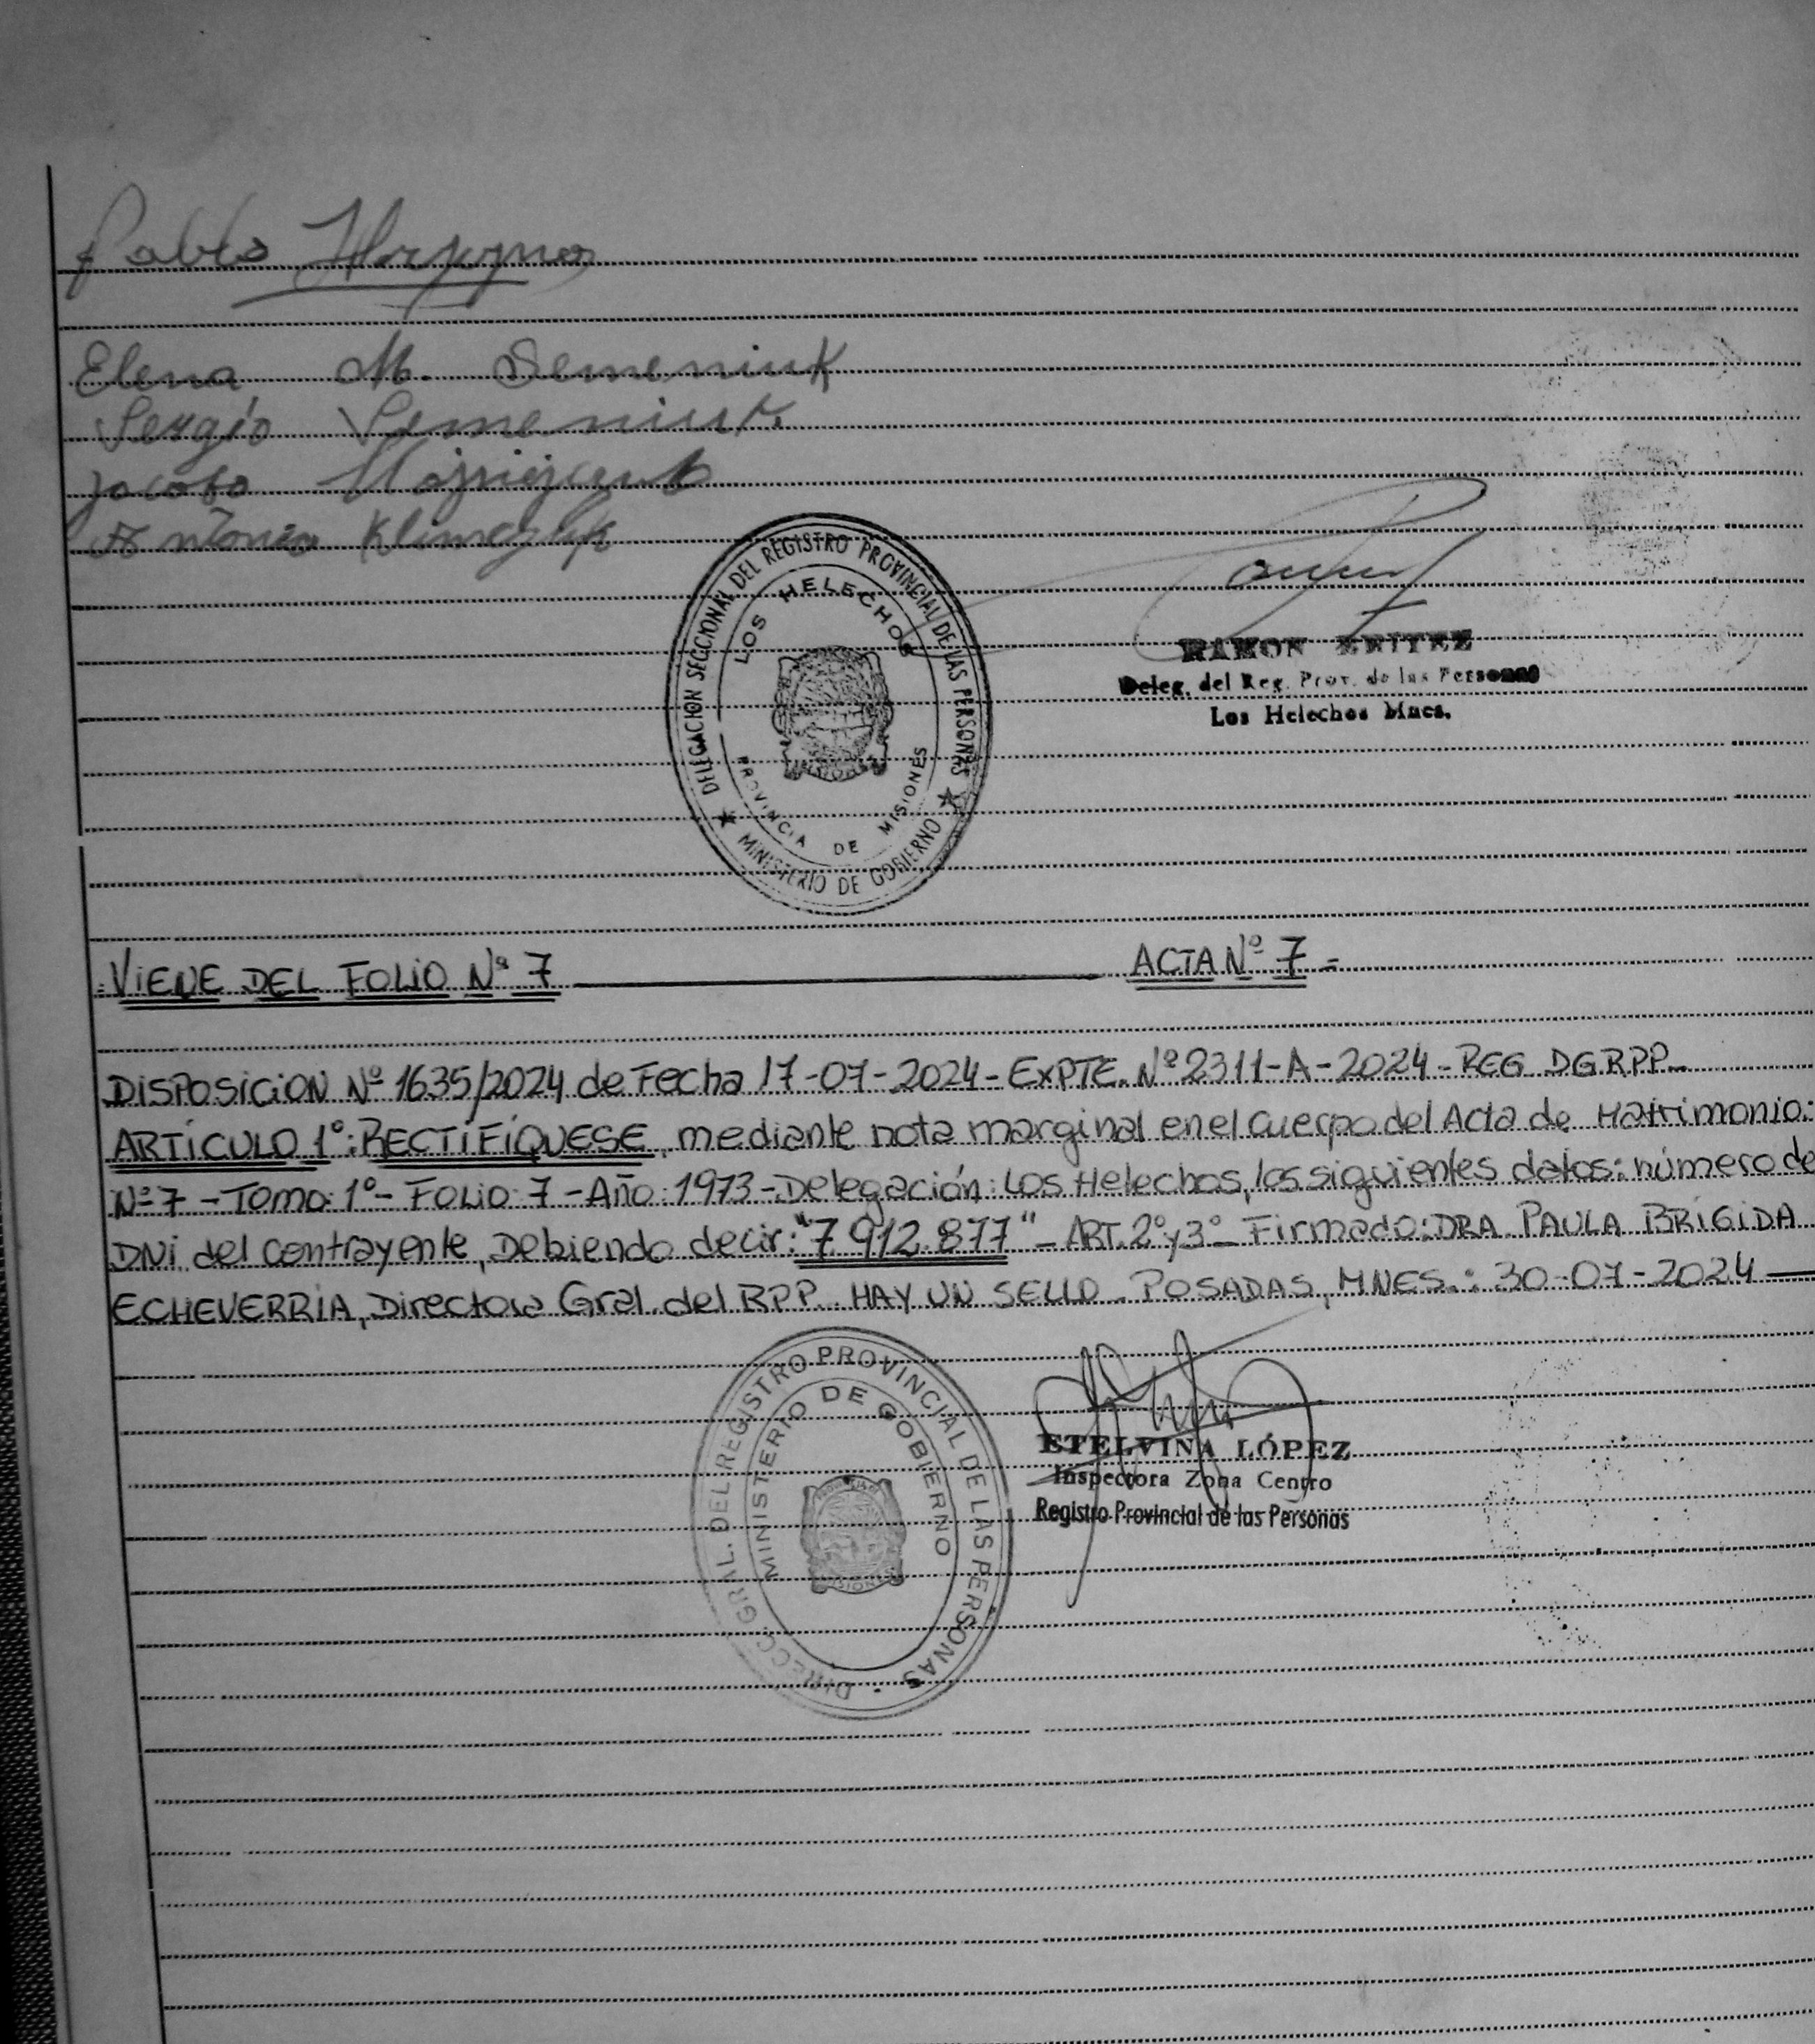 Pablo
Elena M. Semeniuk
Sergio Semeniuk
Jacobo
Antonio Klimczuk
DELEGACION SECCIONAL DEL REGISTRO PROVINCIAL DE LAS PERSONAS
LOS HELECHOS
PROVINCIA DE MISIONES
★ MINISTERIO DE GOBIERNO ★
RAMON
Deleg. del Reg. Prov. de las Personas
Los Helechos Mnes.
VIENE DEL FOLIO Nº 7 ACTA Nº 7
DISPOSICION Nº 1635/2024 de Fecha 17-07-2024 - EXPTE. Nº 2311-A-2024 - REG DGRPP.
ARTÍCULO 1º: RECTIFÍQUESE, mediante nota marginal en el cuerpo del Acta de Matrimonio:
Nº 7 - Tomo: 1º - Folio: 7 - Año: 1973 - Delegación: Los Helechos, los siguientes datos: número de
DNI del contrayente, Debiendo decir: "7.912.877" - ART. 2º y 3º - Firmado: DRA. PAULA BRÍGIDA
ECHEVERRIA, Directora Gral. del RPP. HAY UN SELLO. POSADAS, MNES.: 30-07-2024
DIRECC. GRAL. DEL REGISTRO PROVINCIAL DE LAS PERSONAS
MINISTERIO DE GOBIERNO
ETELVINA LÓPEZ
Inspectora Zona Centro
Registro Provincial de las Personas